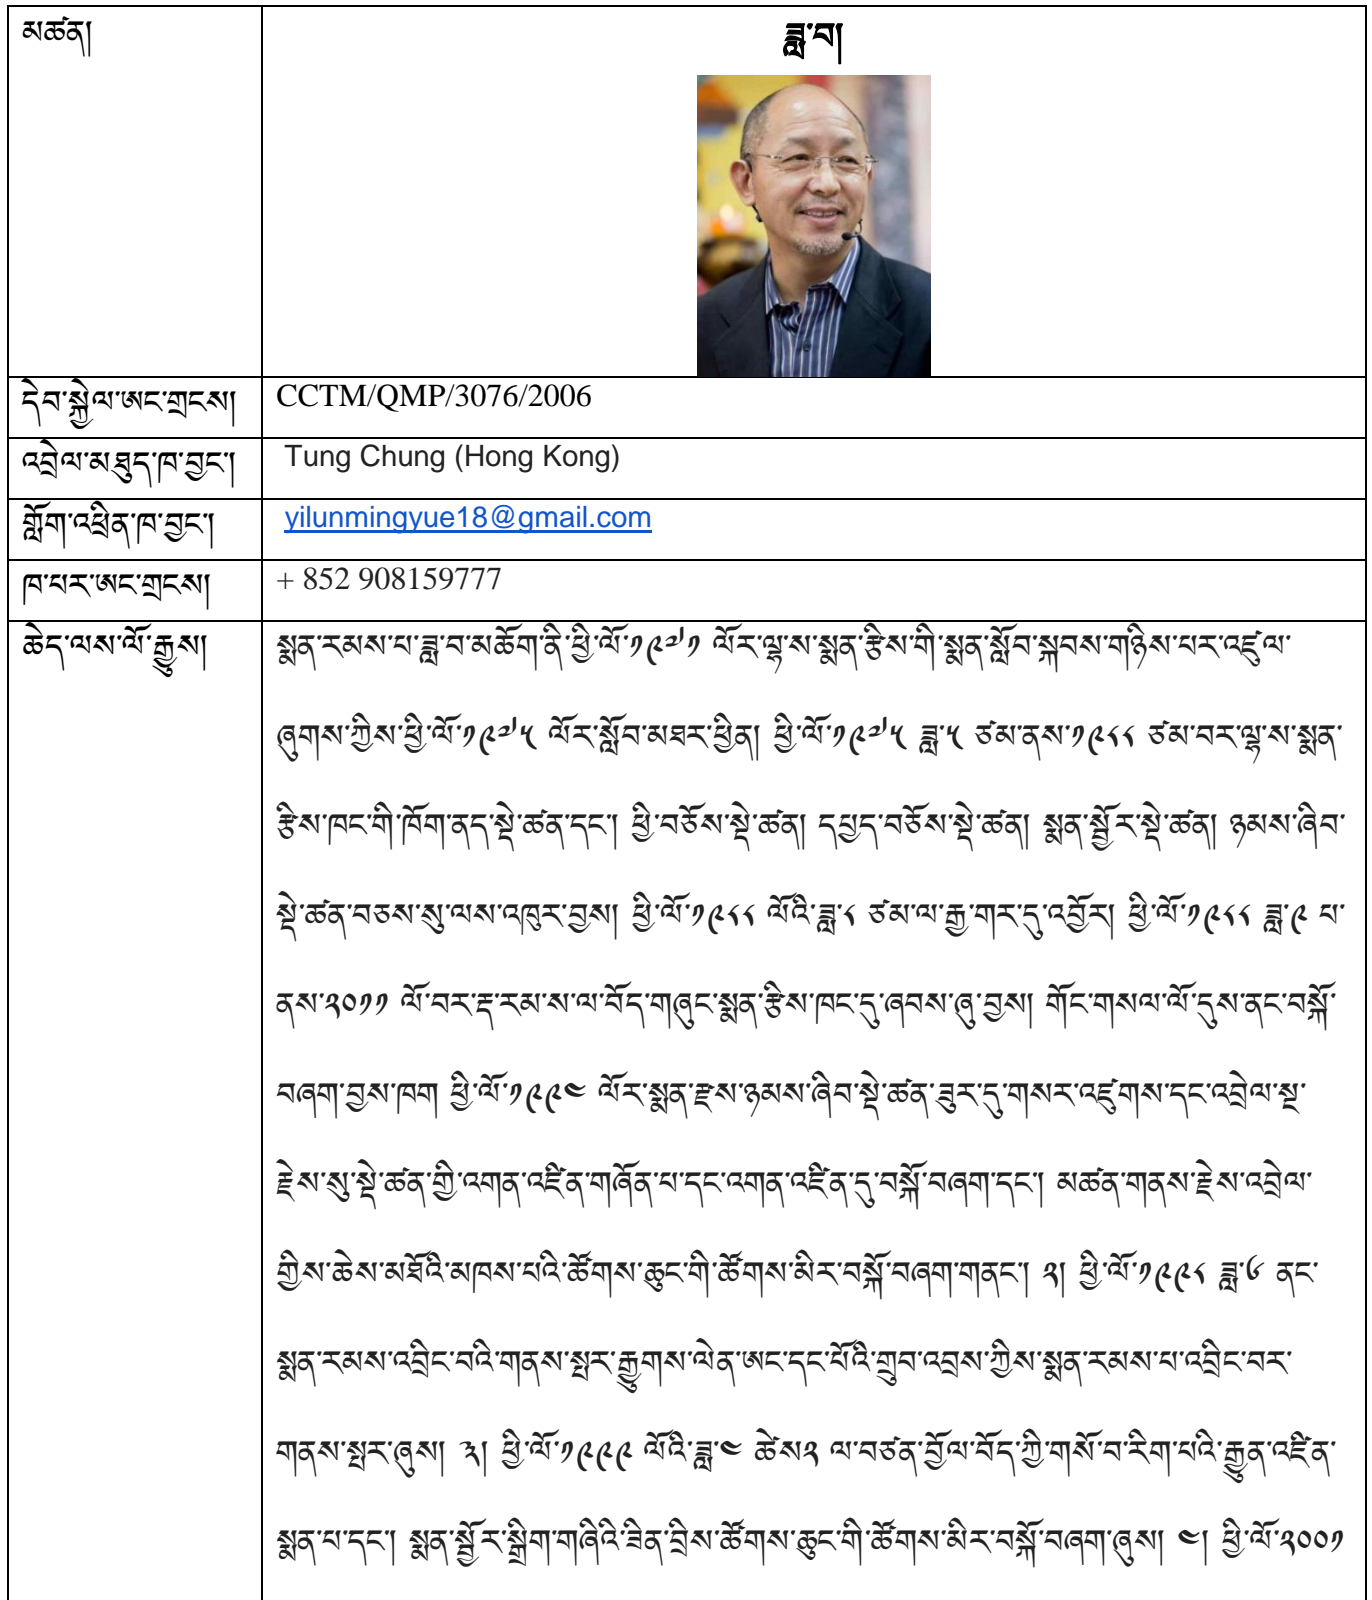 མཚན།
ཟླ་བ།
དེབ་སྐྱེལ་ཨང་གྲངས།
CCTM/QMP/3076/2006
འབྲེལ་མཐུད་ཁ་བྱང་།
Tung Chung (Hong Kong)
གློག་འཕྲིན་ཁ་བྱང་།
yilunmingyue18@gmail.com
ཁ་པར་ཨང་གྲངས།
+ 852 908159777
ཆེད་ལས་ལོ་རྒྱུས།
སྨན་རམས་པ་ཟླ་བ་མཆོག་ནི་ཕྱི་ལོ་༡༩༧༡ ལོར་ལྷ་ས་སྨན་རྩིས་གི་སྨན་སློབ་སྐབས་གཉིས་པར་འཛུལ་
ཞུགས་ཀྱིས་ཕྱི་ལོ་༡༩༧༥ ལོར་སློབ་མཐར་ཕྱིན། ཕྱི་ལོ་༡༩༧༥ ཟླ་༥ ཙམ་ནས་༡༩༨༨ ཙམ་བར་ལྷ་ས་སྨན་
རྩིས་ཁང་གི་ཁོག་ནད་སྡེ་ཚན་དང་། ཕྱི་བཅོས་སྡེ་ཚན། དཔྱད་བཅོས་སྡེ་ཚན། སྨན་སྦྱོར་སྡེ་ཚན། ཉམས་ཞིབ་
སྡེ་ཚན་བཅས་སུ་ལས་འཁུར་བྱས། ཕྱི་ལོ་༡༩༨༨ ལོའི་ཟླ་༨ ཙམ་ལ་རྒྱ་གར་དུ་འབྱོར། ཕྱི་ལོ་༡༩༨༨ ཟླ་༩ པ་
ནས་༢༠༡༡ ལོ་བར་རྡ་རམ་ས་ལ་བོད་གཞུང་སྨན་རྩིས་ཁང་དུ་ཞབས་ཞུ་བྱས། གོང་གསལ་ལོ་དུས་ནང་བསྐོ་
བཞག་བྱས་ཁག ཕྱི་ལོ་༡༩༩༤ ལོར་སྨན་རྫས་ཉམས་ཞིབ་སྡེ་ཚན་ཟུར་དུ་གསར་འཛུགས་དང་འབྲེལ་སྔ་
རྗེས་སུ་སྡེ་ཚན་གྱི་འགན་འཛིན་གཞོན་པ་དང་འགན་འཛིན་དུ་བསྐོ་བཞག་དང་། མཚན་གནས་རྗེས་འབྲེལ་
གྱིས་ཆེས་མཐོའི་མཁས་པའི་ཚོགས་ཆུང་གི་ཚོགས་མིར་བསྐོ་བཞག་གནང་། ༢། ཕྱི་ལོ་༡༩༩༨ ཟླ་༦ ནང་
སྨན་རམས་འབྲིང་བའི་གནས་སྤར་རྒྱུགས་ལེན་ཨང་དང་པོའི་གྲུབ་འབྲས་ཀྱིས་སྨན་རམས་པ་འབྲིང་བར་
གནས་སྤར་ཞུས། ༣། ཕྱི་ལོ་༡༩༩༩ ལོའི་ཟླ་༤ ཚེས༢ ལ་བཙན་བྱོལ་བོད་ཀྱི་གསོ་བ་རིག་པའི་རྒྱུན་འཛིན་
སྨན་པ་དང་། སྨན་སྦྱོར་སྒྲིག་གཞིའི་ཟིན་བྲིས་ཚོགས་ཆུང་གི་ཚོགས་མིར་བསྐོ་བཞག་ཞུས། ༤། ཕྱི་ལོ་༢༠༠༡